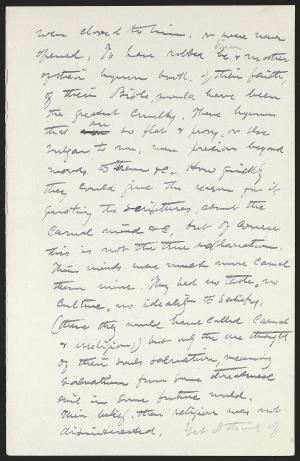 were closed to him, or were never
opened. To have robbed & mother
of their hymn book, of their faith,
of their Bible, would have been
the greatest cruelty. These hymns
that are so flat & prosy, or else
vulgar to me, were precious beyond
words to them &c. How quickly
they could give the reason for it
quoting the scriptures, about the
Carnal mind &c, but of course
this is not the true explanation.
Their minds were much more carnal
than mine. They had no taste, no
culture, no ideality to satisfy,
(these they would have called Carnal
& irreligion!) but only the one thought
of their souls salvation, meaning
salvation from some threatened
evil in some future world.
Their belief, their religion was not
disinterested. Yet I think of